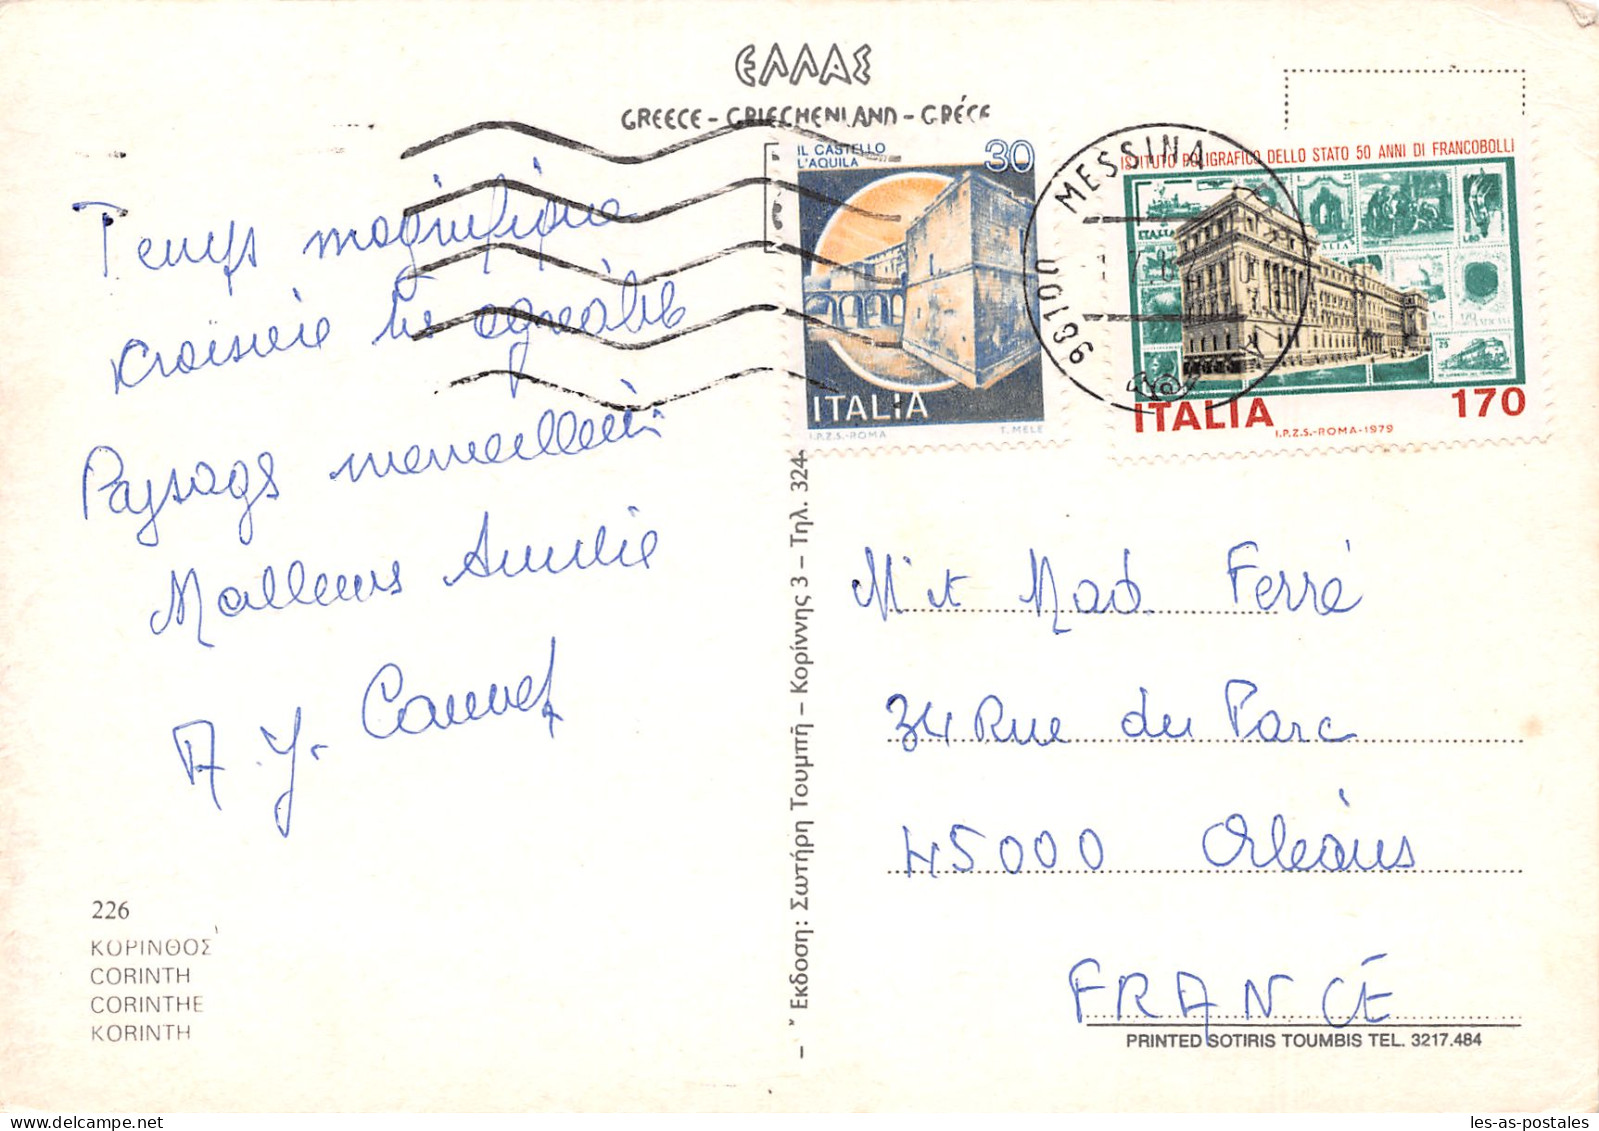 ΕΛΛΑΣ
GREECE - GRIECHENLAND - GRÉCE
IL CASTELLO
L'AQUILA
30
ITALIA
I.P.Z.S.-ROMA T. MELE
MESSINA
98100
ISTITUTO POLIGRAFICO DELLO STATO 50 ANNI DI FRANCOBOLLI
ITALIA 170
I.P.Z.S.-ROMA-1979
Temps magnifique
croisière très agréable
Paysage merveilleux
Meilleures Amitiés
A. Y.
226
ΚΟΡΙΝΘΟΣ
CORINTH
CORINTHE
KORINTH
Έκδοση: Σωτήρη Τουμπή – Κορίννης 3 – Τηλ. 324
Mr et Mad Ferré
34 Rue du Parc
45000 Orléans
FRANCE
PRINTED SOTIRIS TOUMBIS TEL. 3217.484
les-as-postales